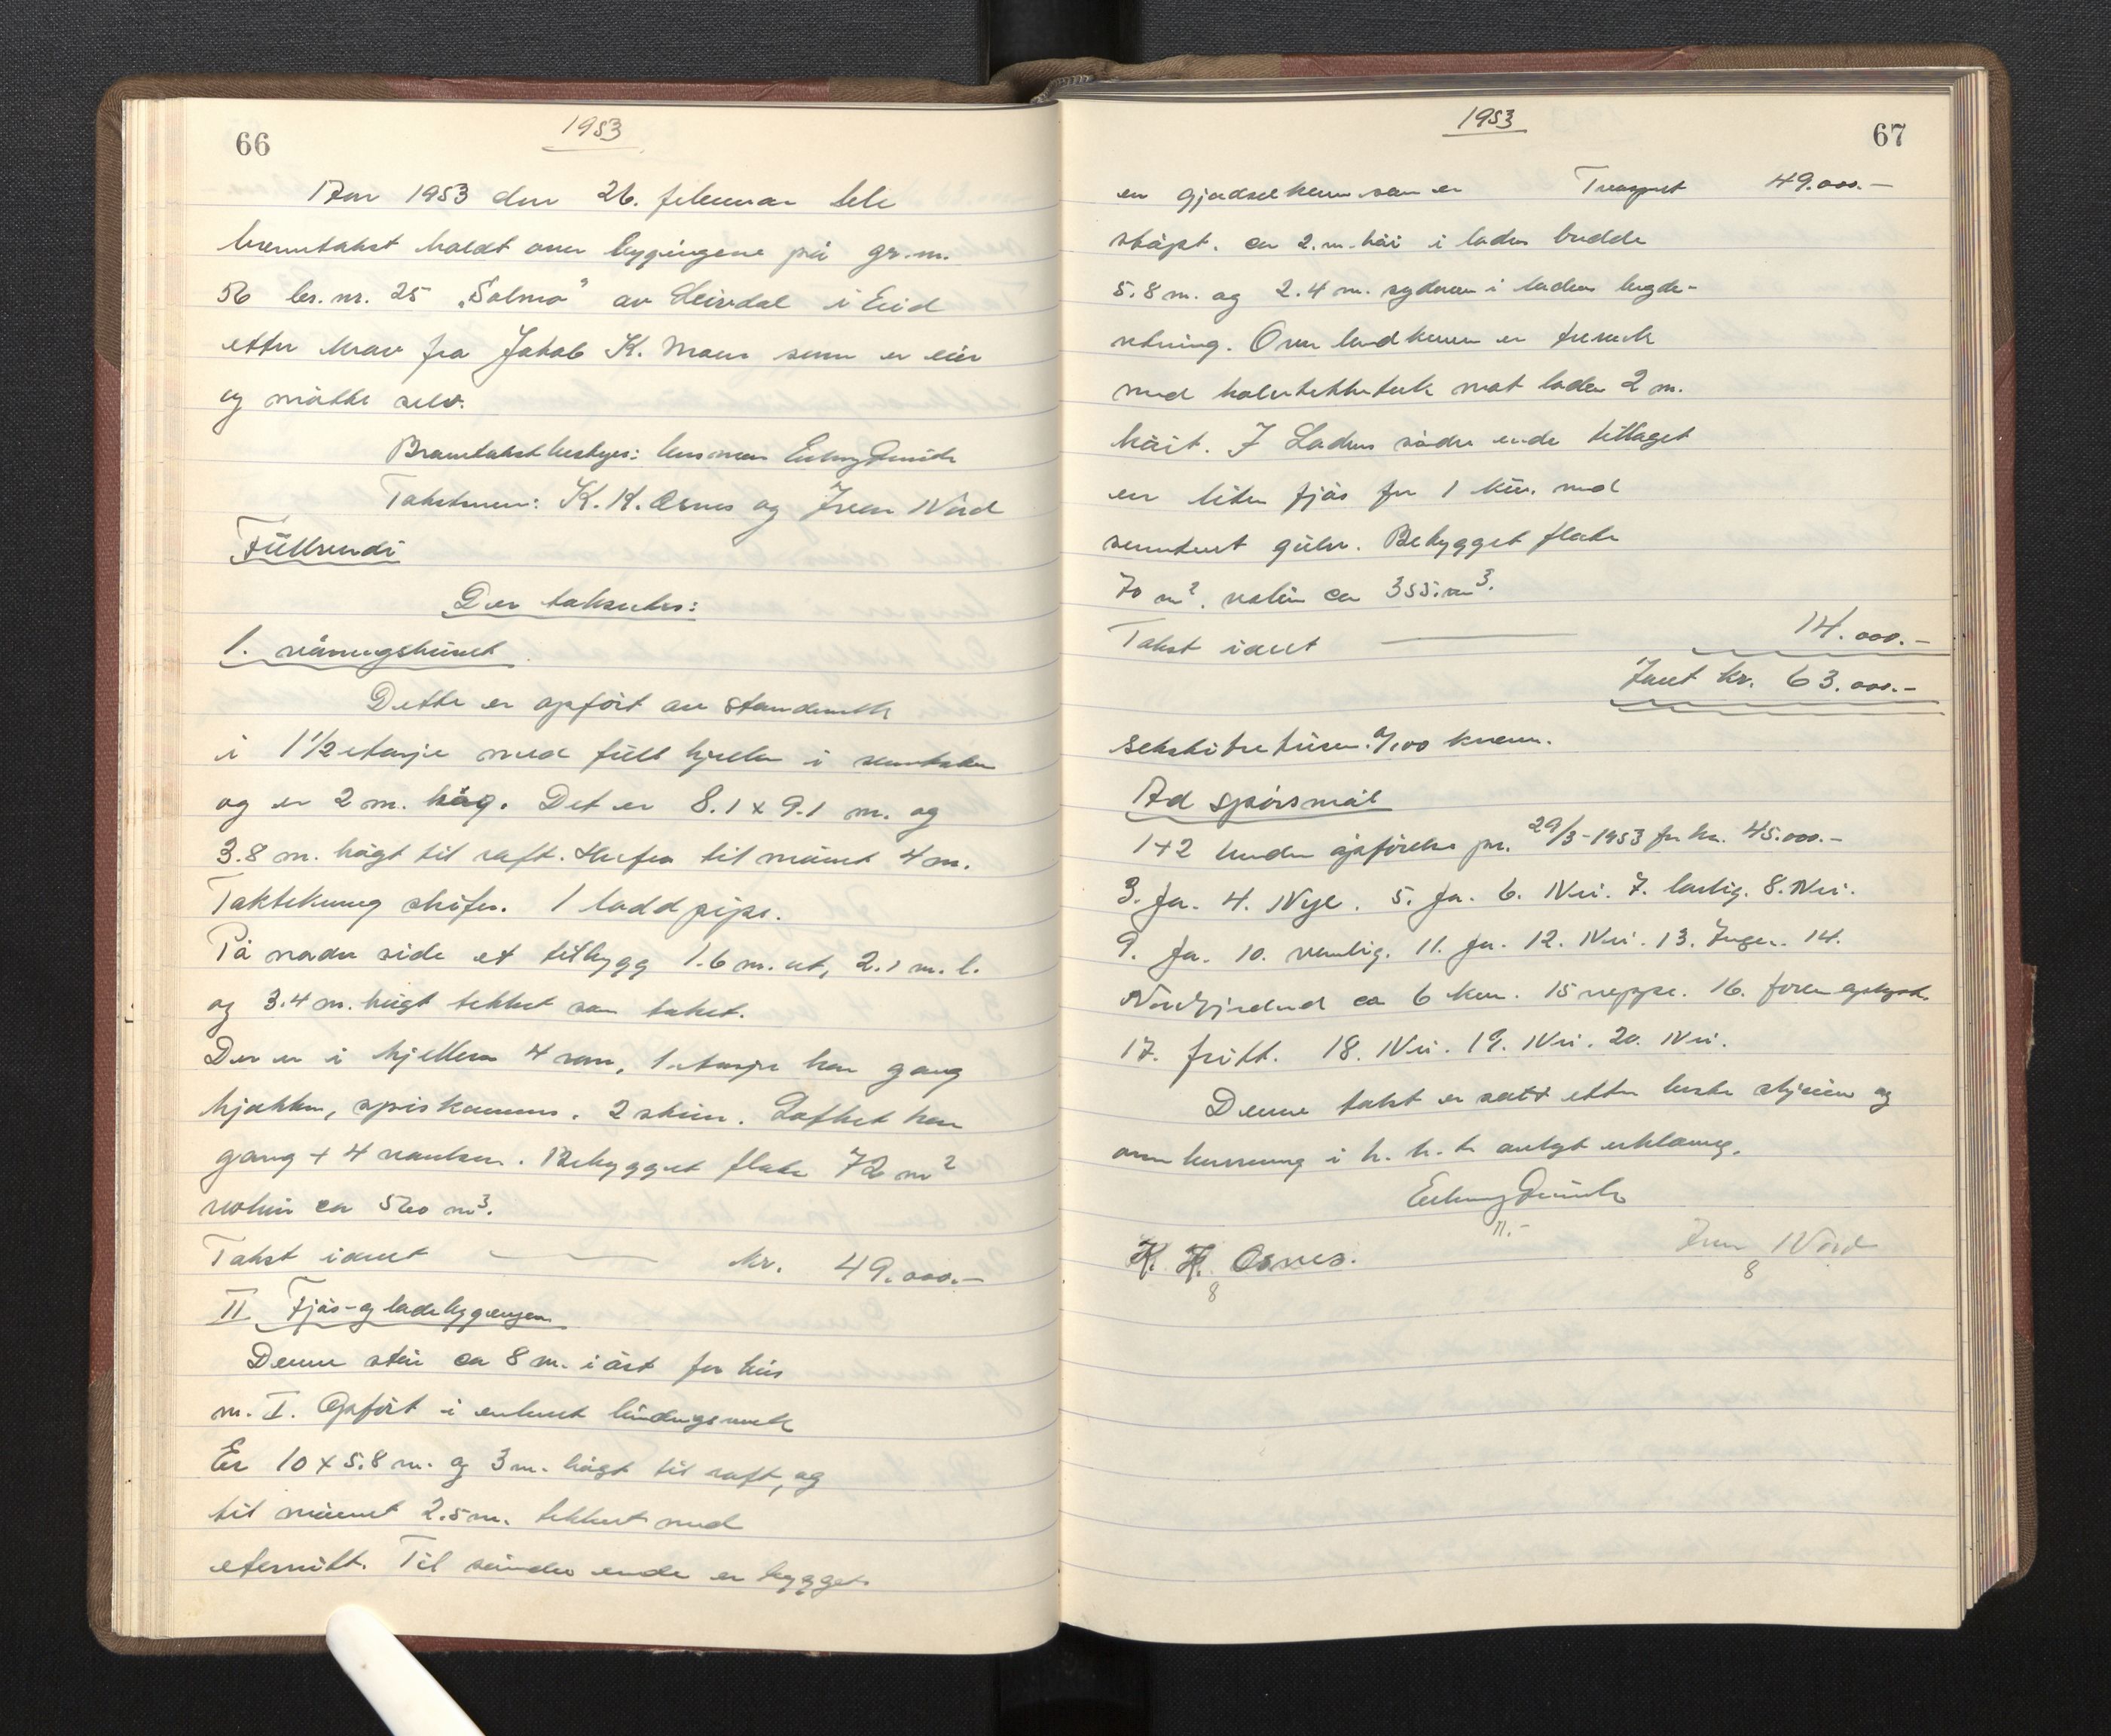 66
1953
Aar 1953 den 26. februar ble
brenntakst holdt over bygingene på gr.nr.
56 br. nr. 25 „Solmo" av Leivdal i Eid
etter krav fra Jakob K. Maurs som er eier
og møtte selv.
Branntakstbestyrer: lensmann
Takstmen: K. K. Osnes og Iver Nord
Der takseres:
1. våningshuset
Dette er opført av standverk
i 1½ etasje med full kjeller i
og er 2 m. høg. Det er 8.1 x 9.1 m. og
3.8 m. høgt til raft. Herfra til mønet 4 m.
Taktekning skifer. 1 lodd pipe.
På nordre side et tilbygg 1.6 m. ut, 2.1 m. l.
og 3.4 m. høgt tekket som taket.
Der er i kjelleren 4 rom, 1 etasje har gang
kjøkken, spiskammer. 2 stuer. Loftet har
gang + 4 værelser. Bebygget flate 72 m²
volum ca 520 m³.
Takst idnet — kr. 49.000.—
II Fjøs- og ladebygningen
Denne står ca 8 m. i øst for hus
nr. I. Opført i enkelt bindingsverk
Er 10 x 5.8 m. og 3 m. høgt til raft, og
til mønet 2.5 m. tekket med
eternitt. Til søndre ende er bygget
67
1953
en gjødselkum som er Transport 49.000.—
støpt. ca 2. m. høi i ladens bredde
5.8 m. og 2.4 m. sydover i ladens lengde-
retning. Over landkummen er
med halvtekketak mot laden 2 m.
høit. I Ladens søndre ende tillaget
en liten fjøs for 1 ku. med
sementert gulv. Bebygget flate
70 m². volum ca 355. m³.
Takst idnet — 14.000.—
Idnet kr. 63.000.—
sekstitretusen 0/100 kroner.
Ad spørsmål
1+2 under opførelse pr. 29/3-1953 for kr. 45.000.—
3. Ja. 4. Nye. 5. Ja. 6. Nei. 7. 8. Nei.
9. Ja. 10. vanlig. 11. Ja. 12. Nei. 13. Ingen. 14.
Nordfjordeid ca 6 km. 15 neppe. 16.
17. fritt. 18. Nei. 19. Nei. 20. Nei.
Denne takst er satt etter beste skjønn og
overbevisning i h. h. t. avlagt erklæring.
K. K. Osnes.
8
Iver Nord
8